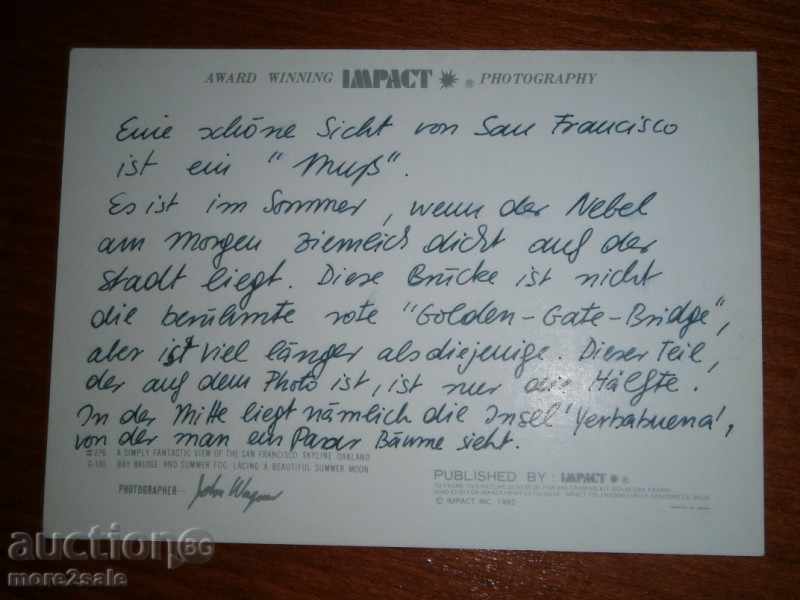 AWARD WINNING IMPACT ® PHOTOGRAPHY
Eine schöne Sicht von San Francisco
ist ein "Muß".
Es ist im Sommer, wenn der Nebel
am Morgen ziemlich dicht auf der
Stadt liegt. Diese Brücke ist nicht
die berühmte rote "Golden-Gate-Bridge",
aber ist viel länger als diejenige. Dieser Teil,
der auf dem Photo ist, ist nur die Hälfte.
In der Mitte liegt nämlich die Insel 'Yerbabuena',
von der man ein Paar Bäume sieht.
#276 A SIMPLY FANTASTIC VIEW OF THE SAN FRANCISCO SKYLINE OAKLAND
BAY BRIDGE AND SUMMER FOG, LACING A BEAUTIFUL SUMMER MOON
PHOTOGRAPHER John Wagner
PUBLISHED BY: IMPACT ®
© IMPACT INC.
auction66
more2sale